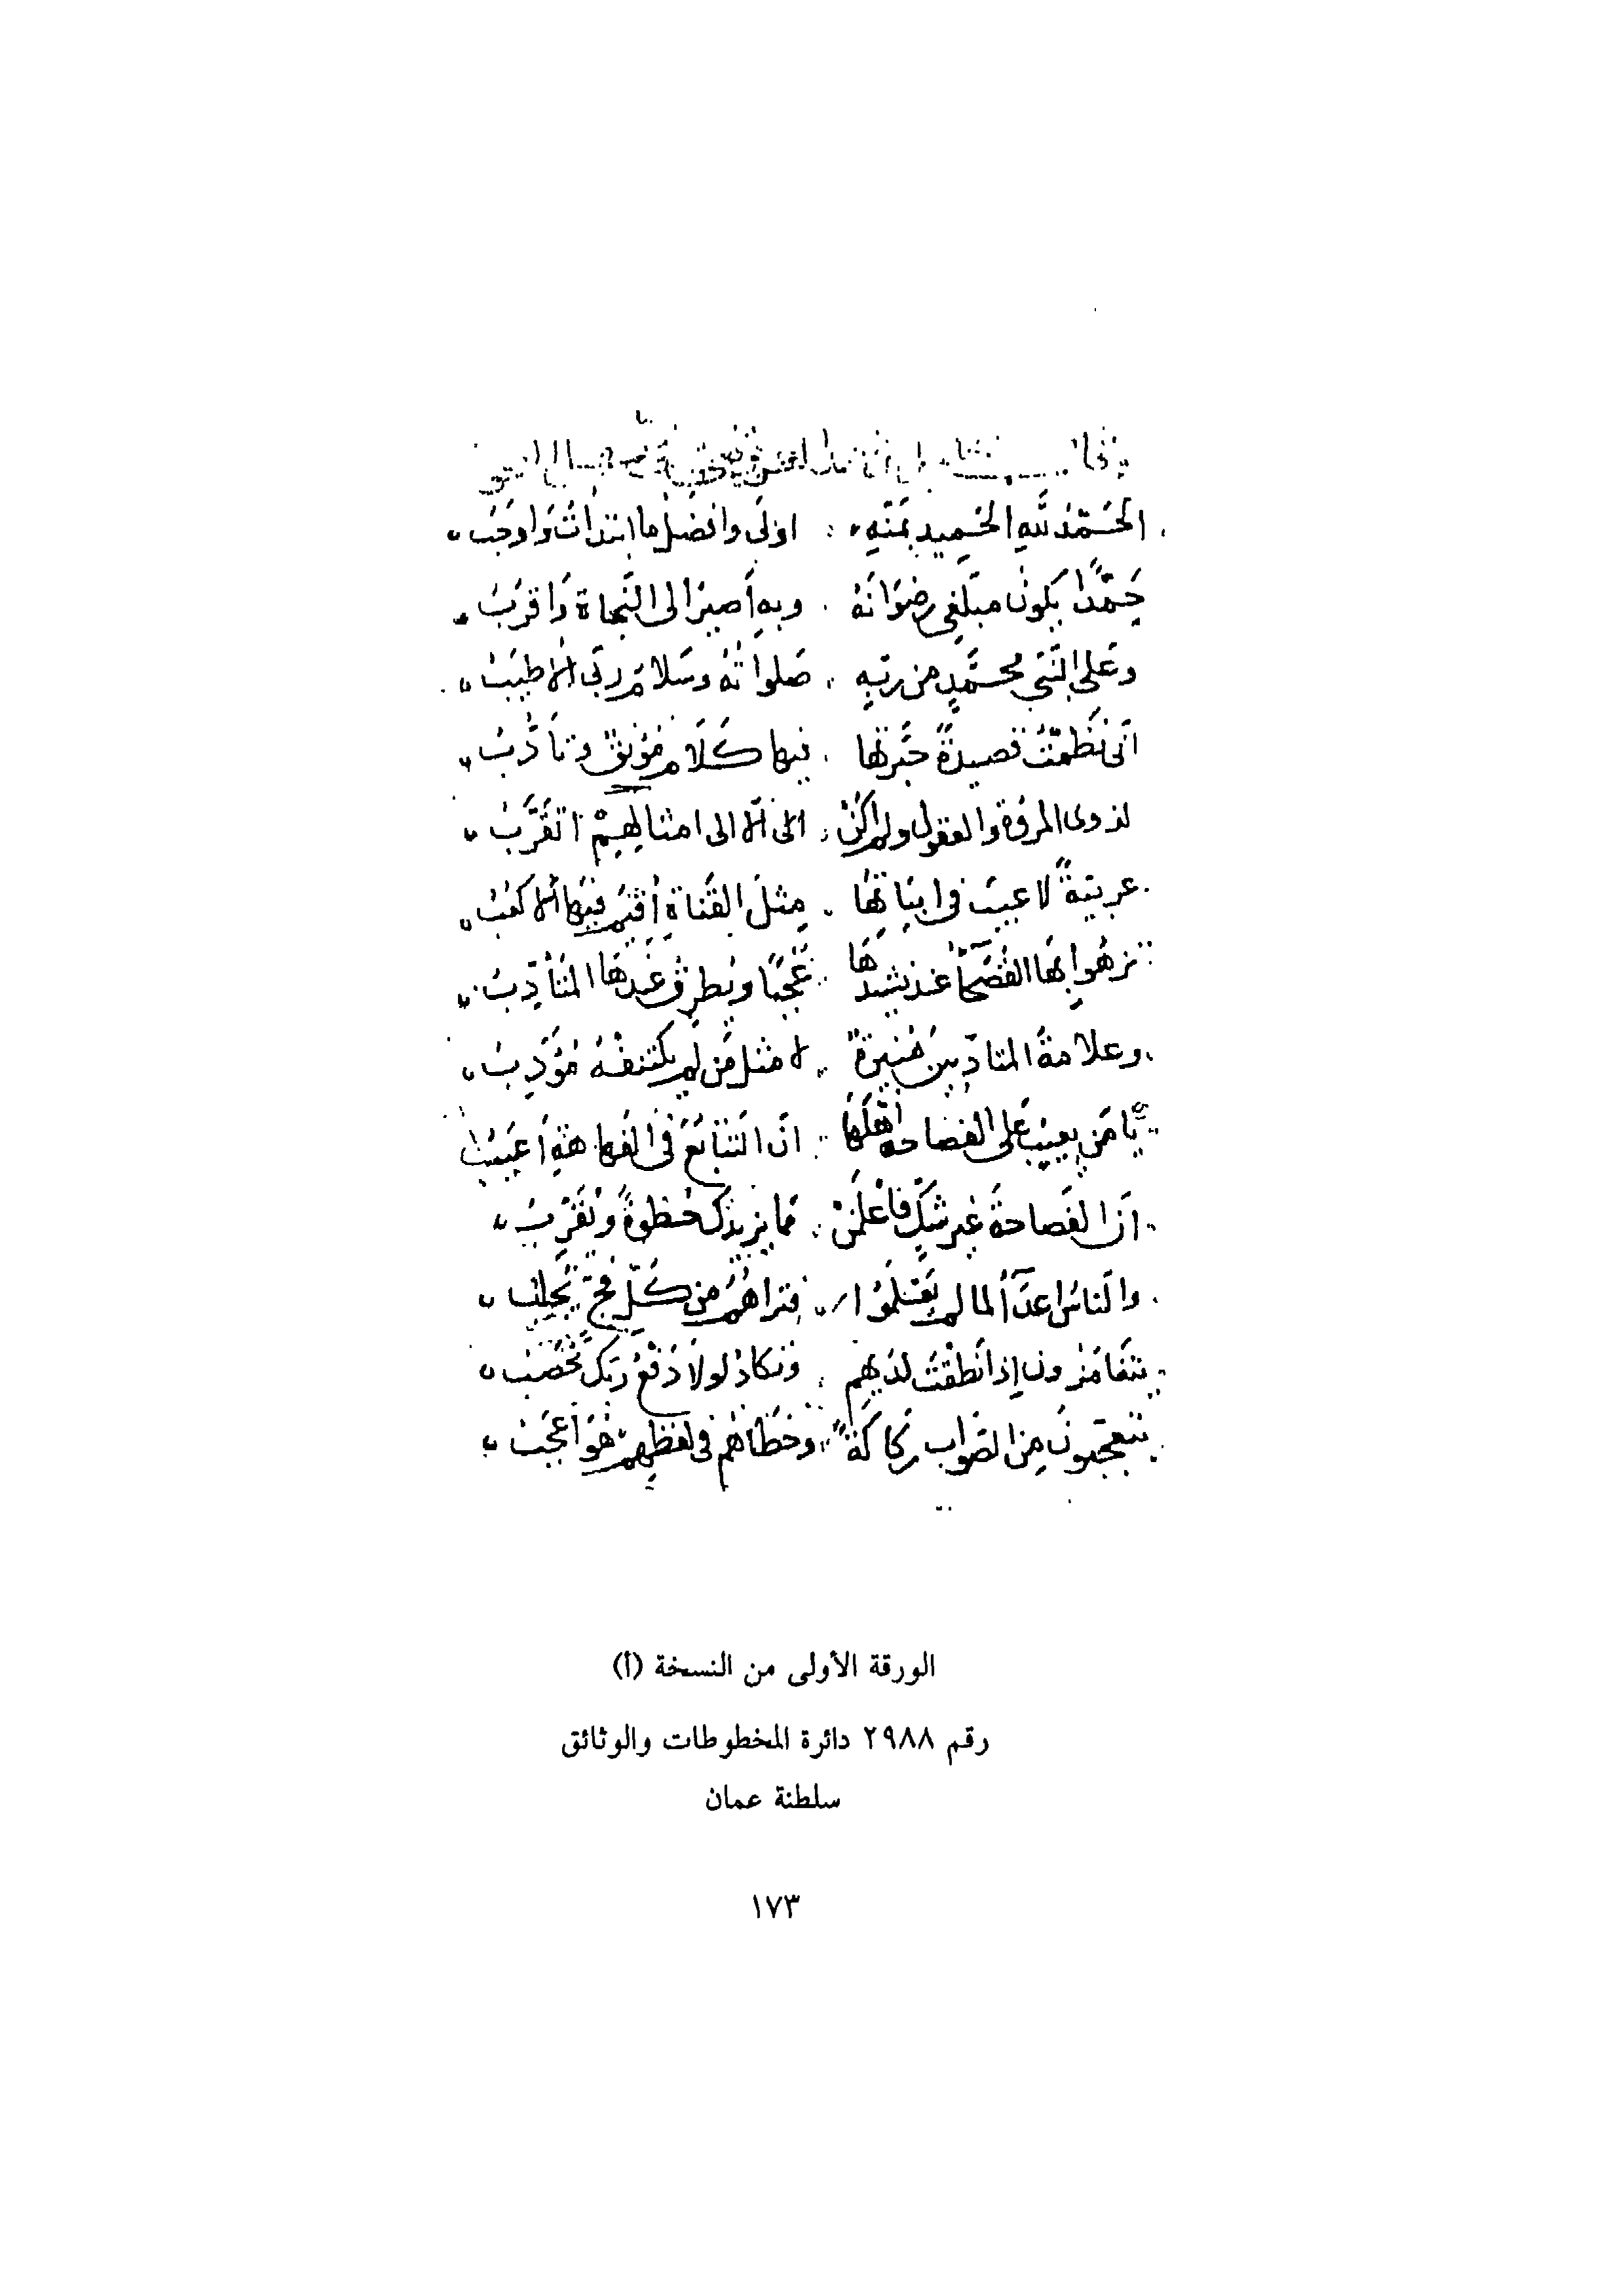 الحَمدُ للهِ الحَمِيدِ بمَنّهِ اولَى وافضَلُ ما ابتدَأتُ وَاوجَبُ
حَمدًا يكونُ مبَلِّغى رضوَانَهُ وبهِ أصيرُ الى النَّجاة وَاقرَبُ
وعَلى النَّبىّ محمَّدٍ من ربّهِ صَلوَاتهُ وسَلامُ ربّى الاطيَبُ
انّى نَظَمْتُ قصيدَةً حبَّرتُها فيها كَلَامٌ مُؤنقٌ وتأَدُّبُ
لذوى المرؤة والعقول ولم اكُنْ الّا الى امثالِهِمْ اتقَرَّبُ
عربيّةً لا عيبَ فى ابيَاتهَا مِثلَ القَناةِ أُقيمَ فيهَا الاكعُبُ
تزهُوا بهَا الفُصَحَآءُ عندَ نشيدهَا عَجَبًا ويُطرقُ عندهَا المتَأَدِّبُ
وعلامةُ المتادّبينَ مُنيرةٌ لا مثلَ مَن لم يكتنفْهُ مُؤَدِّبُ
يَا مَن يعيبُ عَلى الفصاحة اهْلَهَا انّ التتابُعَ فى الفهاهةِ أعيَبُ
انّ الفَصاحةَ غيرَ شكٍّ فَاعْلَمَنْ مما يزيدُكَ حُظوةً ويُقَرّبُ
والناسُ اعدَآءٌ لما لم يَعْلَمُوا فتراهُمُ من كُلّ فجٍّ يُجلِبُ
يتغَامَزونَ إذا نَطَقْتَ لدَيهِم وتكادُ لولَا دَفعُ ربّكَ تُحْصَبُ
يتعجّبونَ مِنَ الصَّوابِ رَكَاكَةً وخَطَاهُمُ فى لفظِهِم هُوَ أعجَبُ
الورقة الأولى من النسخة (أ)
رقم ٢٩٨٨ دائرة المخطوطات والوثائق
سلطنة عمان
١٧٣